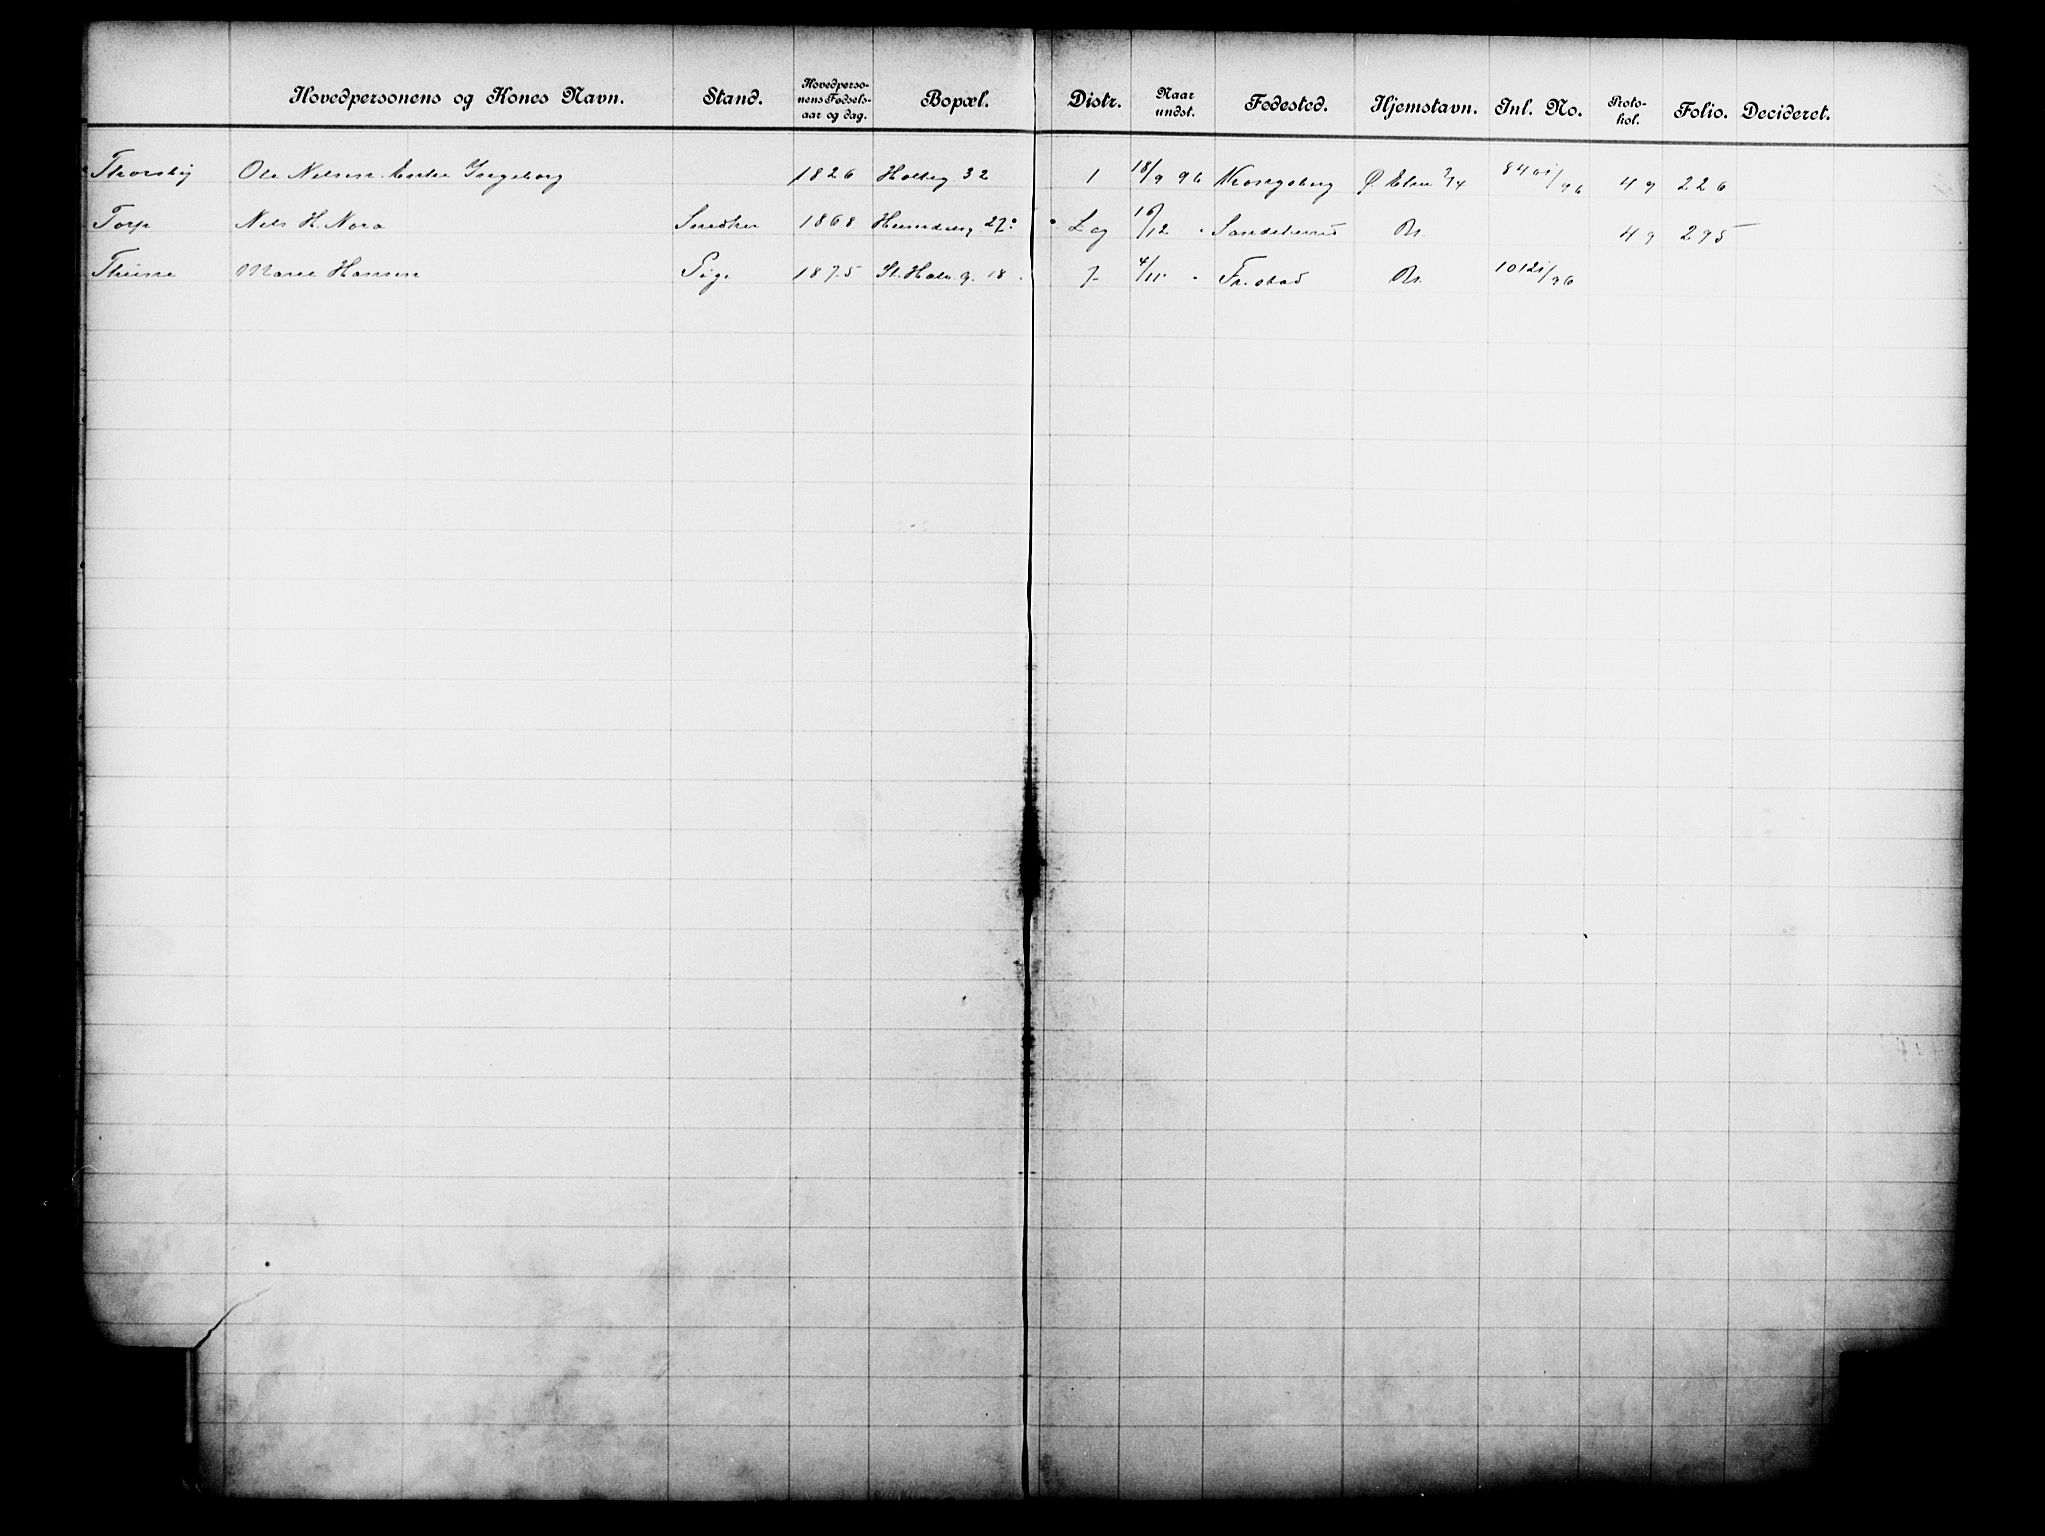 Hovedpersonens og Kones Navn. Stand. Hovedpersonens Fødselsaar og dag. Bopæl. Distr. Naar undst. Fødested. Hjemstavn. Inl. No. Protokol. Folio. Decideret.
Thorsby Ole Nilsen Enke Ingeborg 1826 Holbg 32 1 18/9 96 Kongsberg 8401/96 49 226
Torp Nils H. Nora Snedker 1868 27 Lag 16/12 49 295
Thune Marie Hansen Pige 1875 St. Halv. g. 18 7 4/11 Fr.stad 10121/96